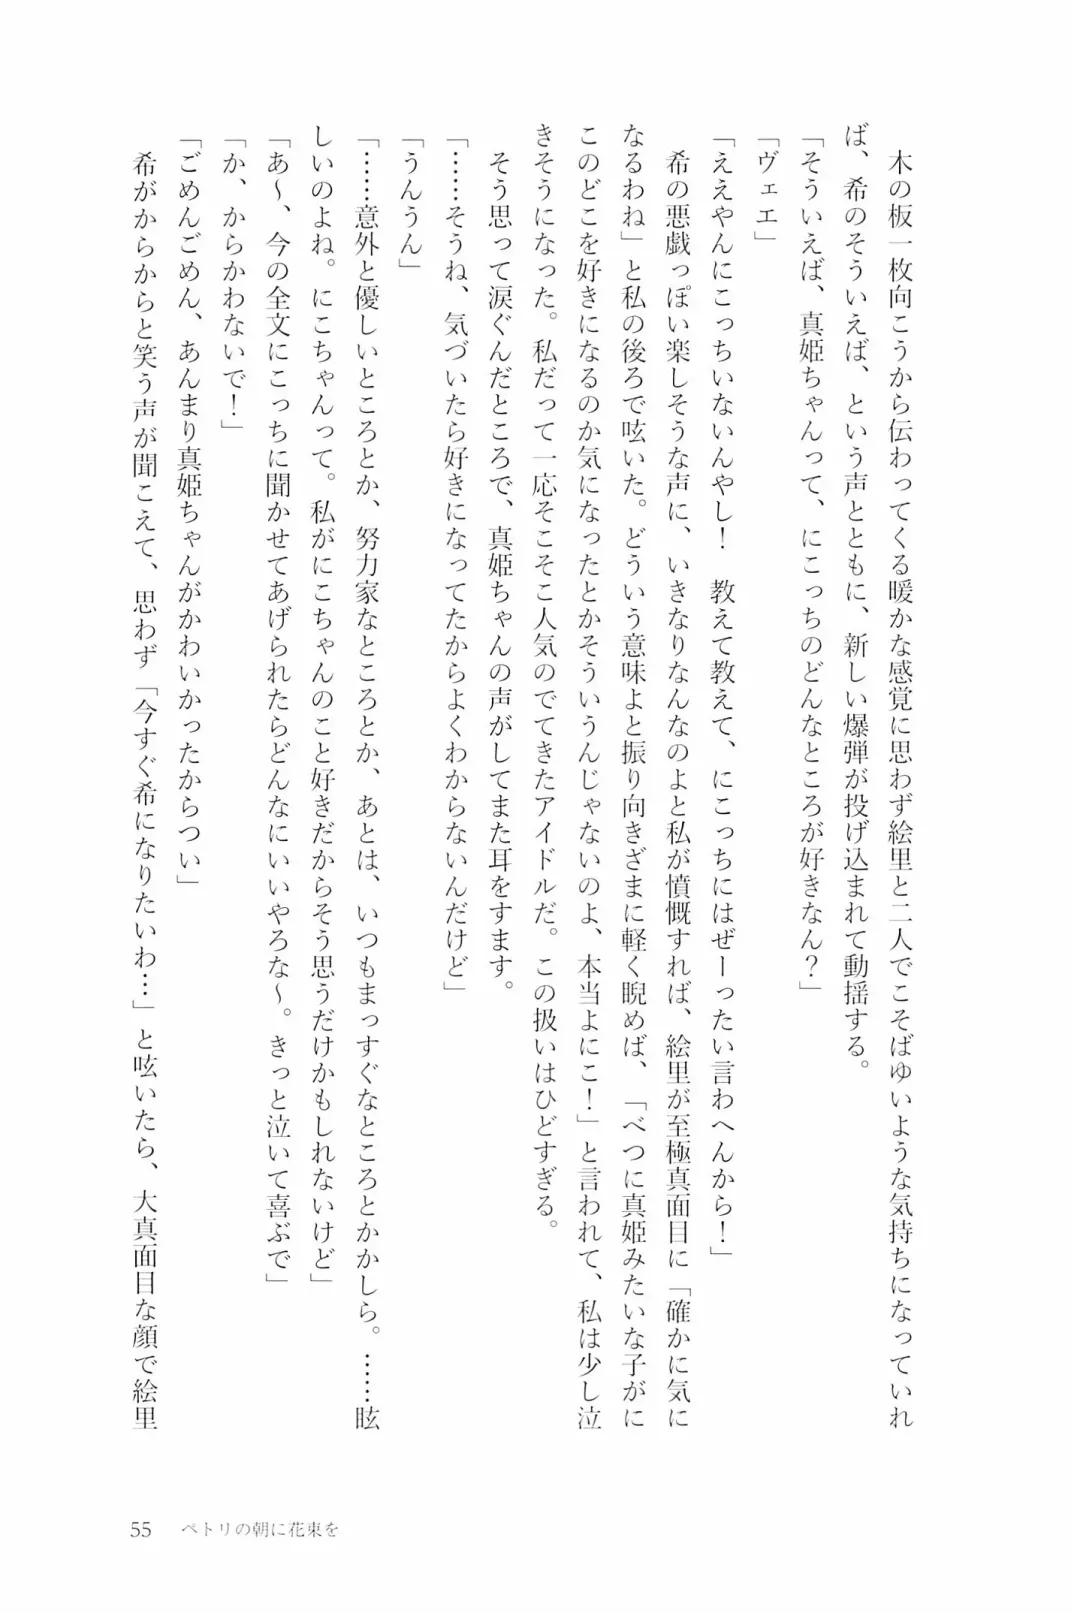 木の板一枚向こうから伝わってくる暖かな感覚に思わず絵里と二人でこそばゆいような気持ちになっていれ
ば、希のそういえば、という声とともに、新しい爆弾が投げ込まれて動揺する。
「そういえば、真姫ちゃんって、にこっちのどんなところが好きなん？」
「ヴェエ」
「ええやんにこっちいないんやし！　教えて教えて、にこっちにはぜーったい言わへんから！」
　希の悪戯っぽい楽しそうな声に、いきなりなんなのよと私が憤慨すれば、絵里が至極真面目に「確かに気に
なるわね」と私の後ろで呟いた。どういう意味よと振り向きざまに軽く睨めば、「べつに真姫みたいな子がに
このどこを好きになるのか気になったとかそういうんじゃないのよ、本当よにこ！」と言われて、私は少し泣
きそうになった。私だって一応そこそこ人気のでてきたアイドルだ。この扱いはひどすぎる。
　そう思って涙ぐんだところで、真姫ちゃんの声がしてまた耳をすます。
「……そうね、気づいたら好きになってたからよくわからないんだけど」
「うんうん」
「……意外と優しいところとか、努力家なところとか、あとは、いつもまっすぐなところとかかしら。……眩
しいのよね。にこちゃんって。私がにこちゃんのこと好きだからそう思うだけかもしれないけど」
「あ～、今の全文にこっちに聞かせてあげられたらどんなにいいやろな～。きっと泣いて喜ぶで」
「か、からかわないで！」
「ごめんごめん、あんまり真姫ちゃんがかわいかったからつい」
　希がからからと笑う声が聞こえて、思わず「今すぐ希になりたいわ…」と呟いたら、大真面目な顔で絵里
55　ペトリの朝に花束を